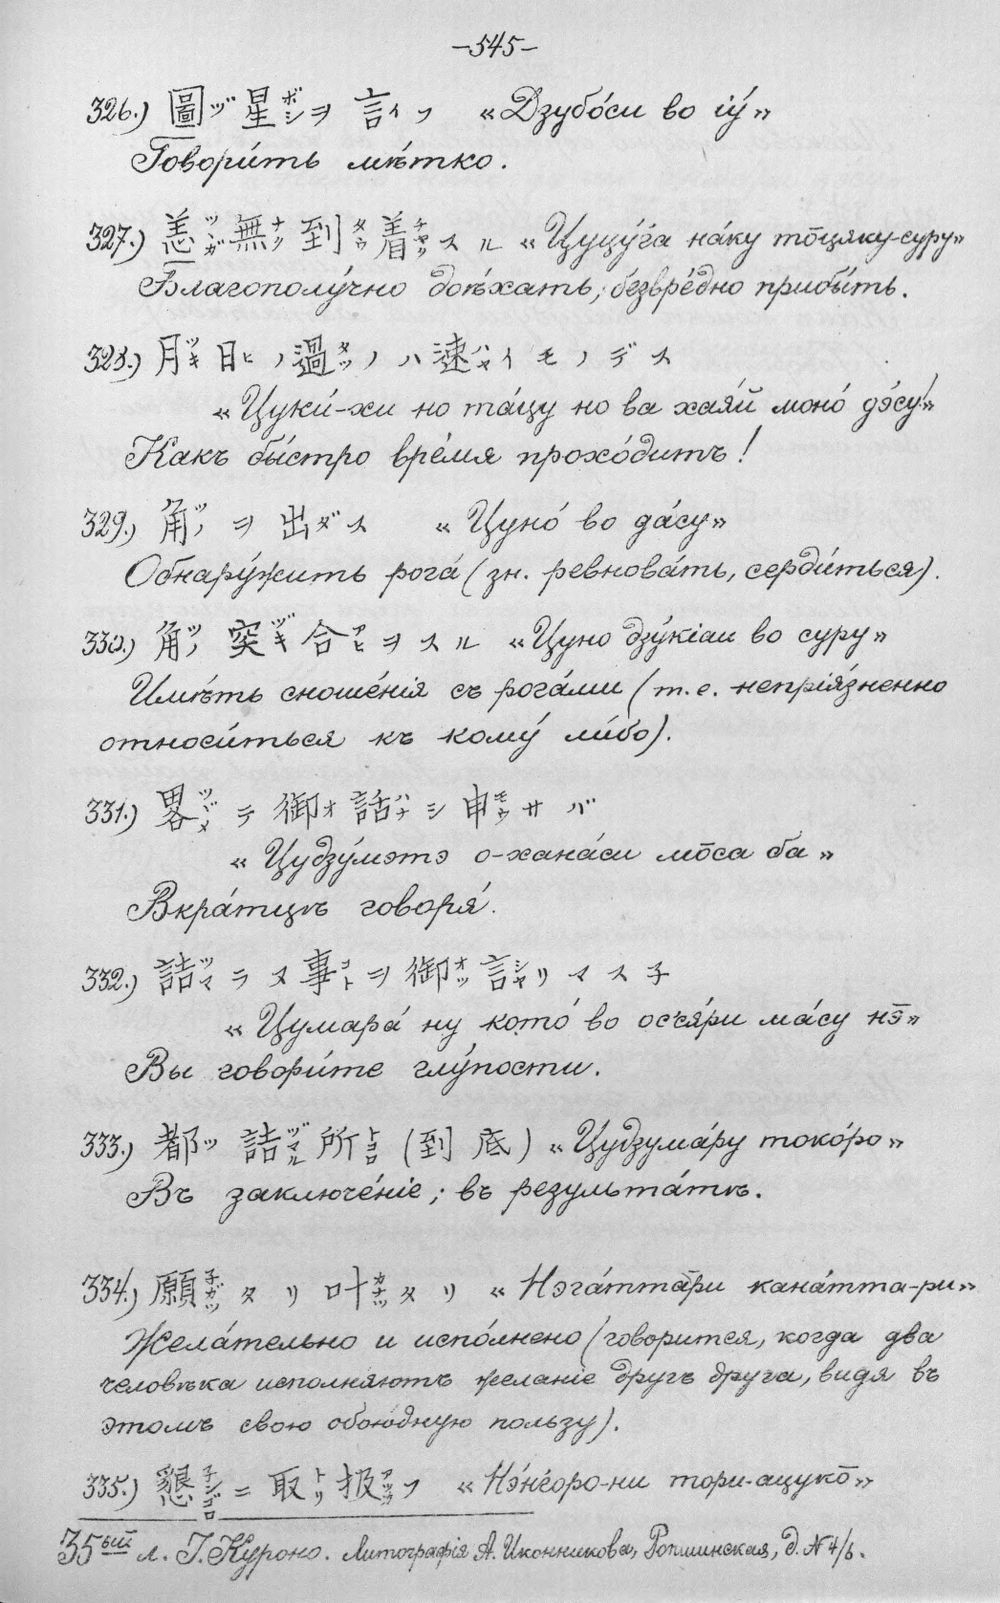 –545–
326.) 圖ヅ 星ボシヲ 言イフ «Дзубо́си во іу́»
Говори́ть мѣтко.
327.) 恙ツツガ無ナク 到タウ着チャクスル «Цуцу́га на́ку то̄цяку-суру»
Благополу́чно доѣхать, безвре́дно прибы́ть.
328.) 月ツキ日ヒノ過タツノハ速ハヤイモノデス
«Цуки́-хи но та́цу но ва хая́й моно́ дэ́су!»
Какъ бы́стро вре́мя прохо́дитъ!
329.) 角ツノヲ 出ダス «Цуно́ во да́су»
Обнару́жить рога́ (зн. ревнова́ть, серди́ться).
330.) 角ツノ 突ヅキ合アヒヲスル «Цуно дзу́кіаи во суру»
Имѣть сноше́нія съ рога́ми (т.е. непрія́зненно
относи́ться къ кому́ ли́бо).
331.) 畧ツヅメテ 御オ話ハナシ申モウサバ
«Цудзу́мэтэ о-хана́си мо̄са ба»
Вкра́тцѣ говоря́.
332.) 詰ツマラヌ事コトヲ御オッ言シャリマス子
«Цумара́ ну кото́ во осъя́ри ма́су нэ̄»
Вы говори́те глу́пости.
333.) 都ツ 詰ヅマル所トコロ (到底) «Цудзума́ру токо́ро»
Въ заключе́ніе; въ результа́тѣ.
334.) 願子ガッタリ 叶カナッタリ «Нэга́ттари кана́тта-ри»
Жела́тельно и испо́лнено (говорится, когда два
человѣка исполняютъ желаніе другъ друга, видя въ
этомъ свою обою́дную пользу).
335.) 懇子ンゴロニ 取トリ扱アツカフ «Нэ́нгоро-ни тори-ацуко̄»
35ый л. І. Куроно. Литографія А. Иконникова, Ропшинская, д. № 4/6.